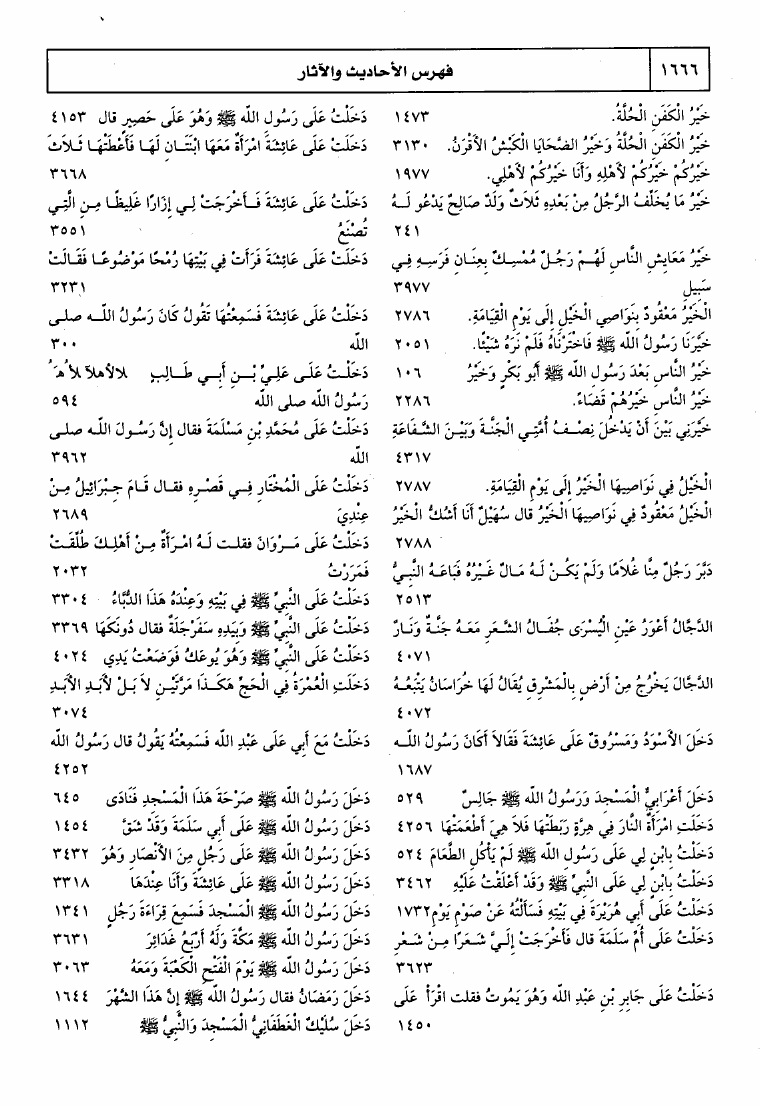 ١٦٦٦
فهرس الأحاديث والآثار
خَيْرُ الْكَفَنِ الْحُلَّةُ. ١٤٧٣
خَيْرُ الْكَفَنِ الْحُلَّةُ وَخَيْرُ الضَّحَايَا الْكَبْشُ الأَقْرَنُ. ٣١٣٠
خَيْرُكُمْ خَيْرُكُمْ لأَهْلِهِ وَأَنَا خَيْرُكُمْ لأَهْلِي. ١٩٧٧
خَيْرُ مَا يُخَلِّفُ الرَّجُلُ مِنْ بَعْدِهِ ثَلاَثٌ وَلَدٌ صَالِحٌ يَدْعُو لَهُ
٢٤١
خَيْرُ مَعَايِشِ النَّاسِ لَهُمْ رَجُلٌ مُمْسِكٌ بِعِنَانِ فَرَسِهِ فِي
سَبِيلِ ٣٩٧٧
الْخَيْرُ مَعْقُودٌ بِنَوَاصِي الْخَيْلِ إِلَى يَوْمِ الْقِيَامَةِ. ٢٧٨٦
خَيَّرَنَا رَسُولُ اللَّه ﷺ فَاخْتَرْنَاهُ فَلَمْ نَرَهُ شَيْئًا. ٢٠٥١
خَيْرُ النَّاسِ بَعْدَ رَسُولِ اللَّه ﷺ أَبُو بَكْرٍ وَخَيْرُ ١٠٦
خَيْرُ النَّاسِ خَيْرُهُمْ قَضَاءً. ٢٢٨٦
خَيَّرَنِي بَيْنَ أَنْ يَدْخُلَ نِصْفُ أُمَّتِي الْجَنَّةَ وَبَيْنَ الشَّفَاعَةِ
٤٣١٧
الْخَيْلُ فِي نَوَاصِيهَا الْخَيْرُ إِلَى يَوْمِ الْقِيَامَةِ. ٢٧٨٧
الْخَيْلُ مَعْقُودٌ فِي نَوَاصِيهَا الْخَيْرُ قال سُهَيْلٌ أَنَا أَشُكُّ الْخَيْرُ
٢٧٨٨
دَبَّرَ رَجُلٌ مِنَّا غُلاَمًا وَلَمْ يَكُنْ لَهُ مَالٌ غَيْرُهُ فَبَاعَهُ النَّبِيُّ
٢٥١٣
الدَّجَّالُ أَعْوَرُ عَيْنِ الْيُسْرَى جُفَالُ الشَّعَرِ مَعَهُ جَنَّةٌ وَنَارٌ
٤٠٧١
الدَّجَّالَ يَخْرُجُ مِنْ أَرْضٍ بِالْمَشْرِقِ يُقَالُ لَهَا خُرَاسَانُ يَتْبَعُهُ
٤٠٧٢
دَخَلَ الأَسْوَدُ وَمَسْرُوقٌ عَلَى عَائِشَةَ فَقَالاَ أَكَانَ رَسُولُ اللَّه
١٦٨٧
دَخَلَ أَعْرَابِيٌّ الْمَسْجِدَ وَرَسُولُ اللَّه ﷺ جَالِسٌ ٥٢٩
دَخَلَتِ امْرَأَةٌ النَّارَ فِي هِرَّةٍ رَبَطَتْهَا فَلاَ هِيَ أَطْعَمَتْهَا ٤٢٥٦
دَخَلْتُ بِابْنٍ لِي عَلَى رَسُولِ اللَّه ﷺ لَمْ يَأْكُلِ الطَّعَامَ ٥٢٤
دَخَلْتُ بِابْنٍ لِي عَلَى النَّبِيِّ ﷺ وَقَدْ أَعْلَقْتُ عَلَيْهِ ٣٤٦٢
دَخَلْتُ عَلَى أَبِي هُرَيْرَةَ فِي بَيْتِهِ فَسَأَلْتُهُ عَنْ صَوْمِ يَوْمِ ١٧٣٢
دَخَلْتُ عَلَى أُمِّ سَلَمَةَ قال فَأَخْرَجَتْ إِلَيَّ شَعَرًا مِنْ شَعْرِ
٣٦٢٣
دَخَلْتُ عَلَى جَابِرِ بْنِ عَبْدِ اللَّه وَهُوَ يَمُوتُ فقلت اقْرَأْ عَلَى
١٤٥٠
دَخَلْتُ عَلَى رَسُولِ اللَّه ﷺ وَهُوَ عَلَى حَصِيرٍ قال ٤١٥٣
دَخَلَتْ عَلَى عَائِشَةَ امْرَأَةٌ مَعَهَا ابْنَتَانِ لَهَا فَأَعْطَتْهَا ثَلاَثَ
٣٦٦٨
دَخَلْتُ عَلَى عَائِشَةَ فَأَخْرَجَتْ لِي إِزَارًا غَلِيظًا مِنِ الَّتِي
تُصْنَعُ ٣٥٥١
دَخَلَتْ عَلَى عَائِشَةَ فَرَأَتْ فِي بَيْتِهَا رُمْحًا مَوْضُوعًا فَقَالَتْ
٣٢٣١
دَخَلْتُ عَلَى عَائِشَةَ فَسَمِعْتُهَا تَقُولُ كَانَ رَسُولُ اللَّه صلى
الله ٣٠٠
دَخَلْتُ عَلَى عَلِيِّ بْنِ أَبِي طَالِبٍ
رَسُولُ اللَّه صلى الله ٥٩٤
دَخَلْتُ عَلَى مُحَمَّدِ بْنِ مَسْلَمَةَ فقال إِنَّ رَسُولَ اللَّه صلى
الله ٣٩٦٢
دَخَلْتُ عَلَى الْمُخْتَارِ فِي قَصْرِهِ فقال قَامَ جِبْرَائِيلُ مِنْ
عِنْدِيَ ٢٦٨٩
دَخَلْتُ عَلَى مَرْوَانَ فقلت لَهُ امْرَأَةٌ مِنْ أَهْلِكَ طُلِّقَتْ
فَمَرَرْتُ ٢٠٣٢
دَخَلْتُ عَلَى النَّبِيِّ ﷺ فِي بَيْتِهِ وَعِنْدَهُ هَذَا الدُّبَّاءُ ٣٣٠٤
دَخَلْتُ عَلَى النَّبِيِّ ﷺ وَبِيَدِهِ سَفَرْجَلَةٌ فقال دُونَكَهَا ٣٣٦٩
دَخَلْتُ عَلَى النَّبِيِّ ﷺ وَهُوَ يُوعَكُ فَوَضَعْتُ يَدِي ٤٠٢٤
دَخَلَتِ الْعُمْرَةُ فِي الْحَجِّ هَكَذَا مَرَّتَيْنِ لاَ بَلْ لأَبَدِ الأَبَدِ
٣٠٧٤
دَخَلْتُ مَعَ أَبِي عَلَى عَبْدِ اللَّه فَسَمِعْتُهُ يَقُولُ قال رَسُولُ اللَّه
٤٢٥٢
دَخَلَ رَسُولُ اللَّه ﷺ صَرْحَةَ هَذَا الْمَسْجِدِ فَنَادَى ٦٤٥
دَخَلَ رَسُولُ اللَّه ﷺ عَلَى أَبِي سَلَمَةَ وَقَدْ شَقَّ ١٤٥٤
دَخَلَ رَسُولُ اللَّه ﷺ عَلَى رَجُلٍ مِنَ الأَنْصَارِ وَهُوَ ٣٤٣٢
دَخَلَ رَسُولُ اللَّه ﷺ عَلَى عَائِشَةَ وَأَنَا عِنْدَهَا ٣٣١٨
دَخَلَ رَسُولُ اللَّه ﷺ الْمَسْجِدَ فَسَمِعَ قِرَاءَةَ رَجُلٍ ١٣٤١
دَخَلَ رَسُولُ اللَّه ﷺ مَكَّةَ وَلَهُ أَرْبَعُ غَدَائِرَ ٣٦٣١
دَخَلَ رَسُولُ اللَّه ﷺ يَوْمَ الْفَتْحِ الْكَعْبَةَ وَمَعَهُ ٣٠٦٣
دَخَلَ رَمَضَانُ فقال رَسُولُ اللَّه ﷺ إِنَّ هَذَا الشَّهْرَ ١٦٤٤
دَخَلَ سُلَيْكٌ الْغَطَفَانِيُّ الْمَسْجِدَ وَالنَّبِيُّ ﷺ ١١١٢